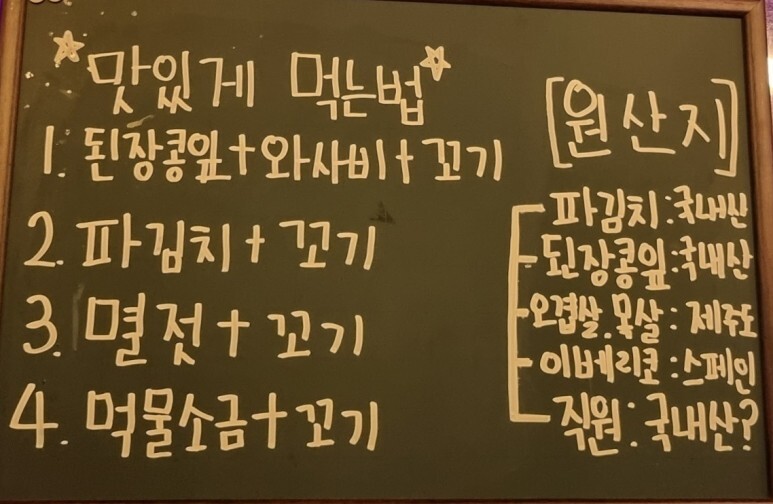 맛있게 먹는법
1. 된장콩잎+와사비+꼬기
2. 파김치+꼬기
3. 멸젓+꼬기
4. 먹물소금+꼬기
[원산지]
파김치:국내산
된장콩잎:국내산
오겹살.목살:제주도
이베리코:스페인
직원:국내산?